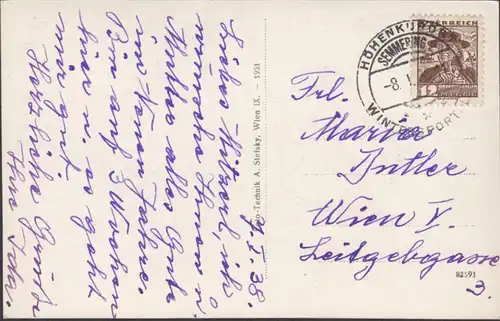 7.I.38.
Liebes Mitzerl, ich
wünsche Ihnen u.
Mutter alles Gute
im Neuen Jahre.
Bin auf 3 Wochen
hier u. es geht
mir gut.
Herzliche Grüße
Ihre
Photo-Technik A. Stefsky, Wien IX. – 1931
HÖHENKURORT
SEMMERING
-8.I
WINTERSPORT
ÖSTERREICH
12
GROSCHEN
Frl.
Marie
Wien V.
Leitgebgasse
3.
82593